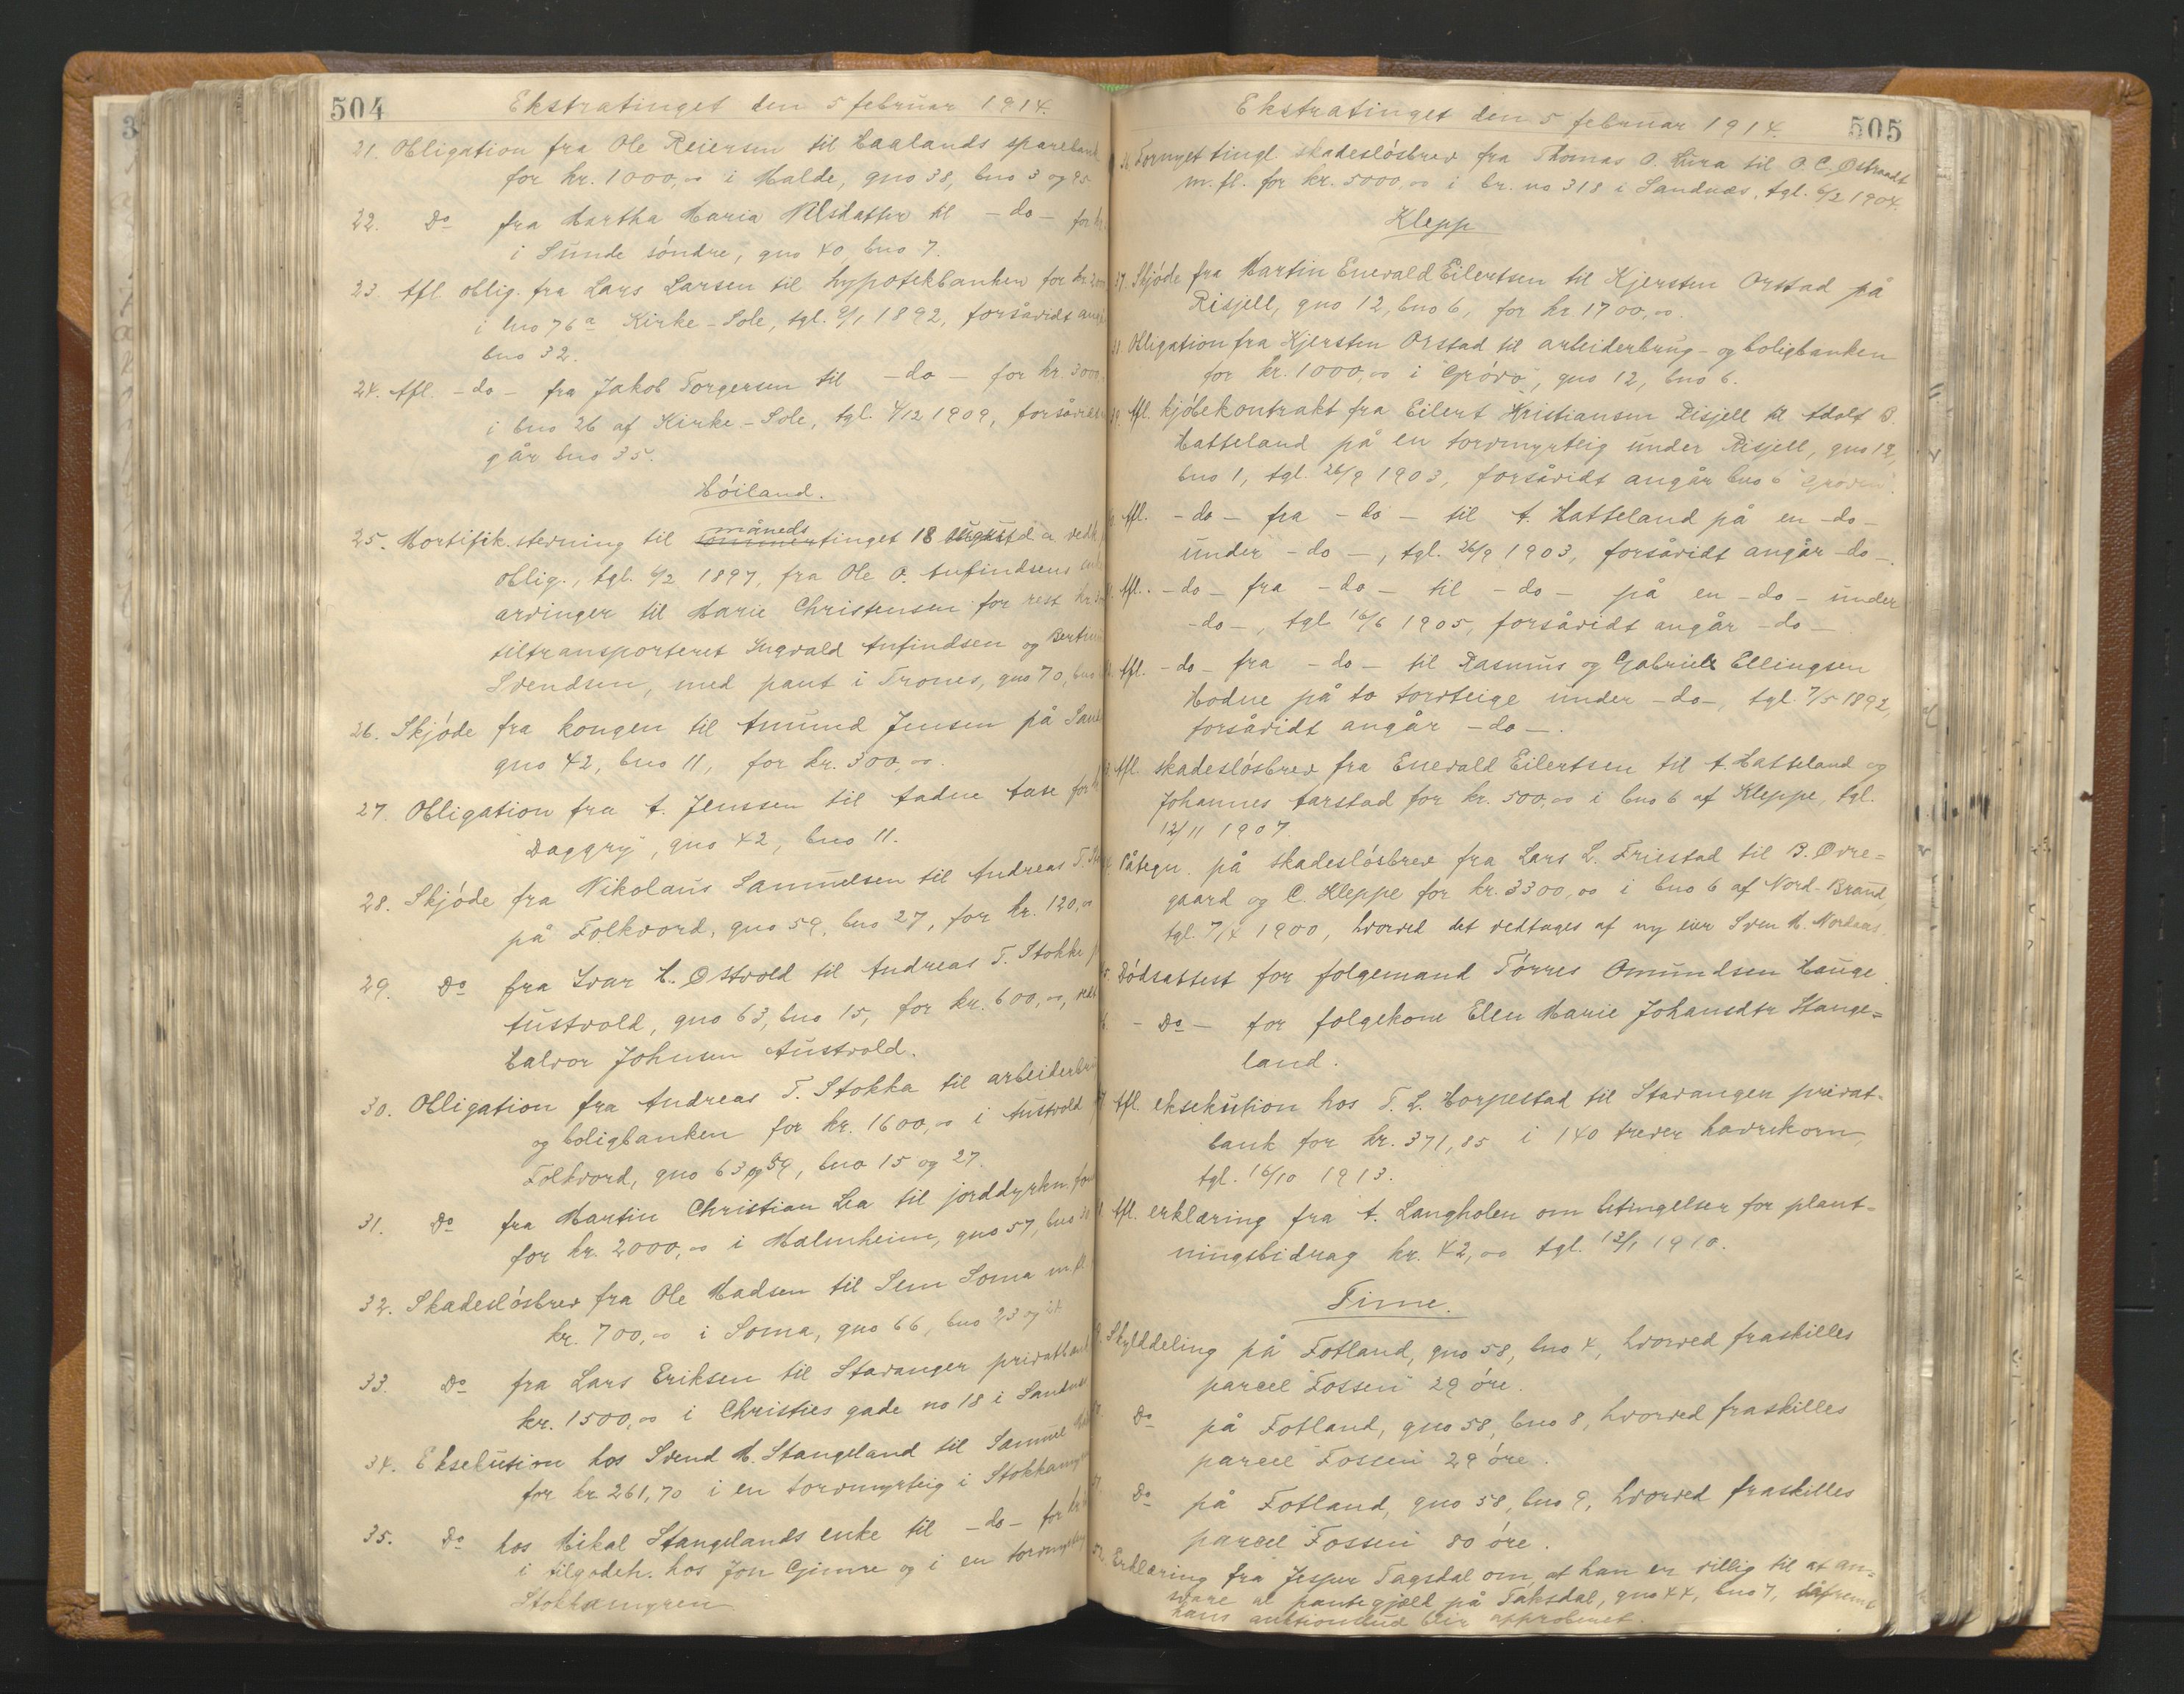 504
Ekstratinget den 5 februar 1914.
21. Obligation fra Ole Reiersen til Haalands sparebank
for kr. 1000,00 i Malde, gno 38, bno 3 og 95
22. Do fra Martha Maria Nilsdatter til - do - for kr.
i Sunde söndre, gno 40, bno 7.
23. Afl. oblig. fra Lars Larsen til hypotekbanken for kr.
i bno 76 a Kirke-Sole, tgl. 9/1 1892, forsåvidt angår
bno 32.
24. Afl. - do - fra Jakob Torgersen til - do - for kr. 3000,
i bno 26 af Kirke-Sole, tgl. 4/12 1909, forsåvidt
går bno 35.
Höiland.
25. Mortifik. stevning til månedstinget 18 august d. a. vedk.
oblig., tgl. 6/2 1897, fra Ole O. Aufindsens
arvinger til Marie Christensen for rest kr.
tiltransporteret Ingvald Aufindsen og
Svendsen, med pant i Trones, gno 70, bno
26. Skjöde fra kongen til Amund Jensen på
gno 42, bno 11, for kr. 300,00.
27. Obligation fra A. Jenssen til Aadne Aase for kr
"Daggry", gno 42, bno 11.
28. Skjöde fra Nikolaus Samuelsen til Andreas T.
på Folkvord, gno 59, bno 27, for kr. 120,00
29. Do fra Ivar H. Östvold til Andreas T. Stokke
Austvold, gno 63, bno 15, for kr. 600,00,
Halvor Johnsen Austvold.
30. Obligation fra Andreas T. Stokka til arbeiderbrug
og boligbanken for kr. 1600,00 i Austvold
Folkvord, gno 63 og 59, bno 15 og 27.
31. Do fra Martin Christian Lea til jorddyrkn. fond
for kr. 2000,00 i Malmheim, gno 57, bno
32. Skadeslösbrev fra Ole Madsen til Sem Soma m. fl.
kr. 700,00 i Soma, gno 66, bno 23 og 24
33. Do fra Lars Eriksen til Stavanger privatbank
kr. 1500,00 i Christies gade no 18 i Sandnes
34. Eksekution hos Svend M. Stangeland til Samuel
for kr. 261,70 i en torvmyrteig i Stokkamyren
35. Do hos Mikal Stangelands enke til - do - for kr
i tilgodeh. hos Jon Gjimre og i en torvmyrteig
Stokkamyren
505
Ekstratinget den 5 februar 1914.
36. Fornyet tingl. skadeslösbrev fra Thomas O. Lura til O. C. Östraadt
m. fl. for kr. 5000,00 i br. no 318 i Sandnæs, tgl. 6/2 1904.
Klepp
37. Skjöde fra Martin Enevald Eilertsen til Kjersten Orstad på
Risjell, gno 12, bno 6, for kr. 1700,00.
Obligation fra Kjersten Orstad til arbeiderbrug- og boligbanken
for kr. 1000,00 i "Grövö", gno 12, bno 6.
Afl. kjöbekontrakt fra Eilert Kristiansen Risjell til Adolf B.
Hatteland på en torvmyrteig under Risjell, gno 12,
bno 1, tgl. 26/9 1903, forsåvidt angår bno 6
Afl. - do - fra - do - til A. Hatteland på en - do -
under - do -, tgl. 26/9 1903, forsåvidt angår - do -.
Afl. - do - fra - do - til - do - på en - do - under
- do -, tgl 16/6 1905, forsåvidt angår - do -.
Afl. - do - fra - do - til Rasmus og Gabriel Ellingsen
Hodne på to torvteige under - do -, tgl. 7/5 1892,
forsåvidt angår - do -.
Afl. skadeslösbrev fra Enevald Eilertsen til A. Hatteland og
Johannes Aarstad for kr. 500,00 i bno 6 af Kleppe, tgl.
12/11 1907.
Påtegn. på skadeslösbrev fra Lars L. Friestad til B. Övre=
gaard og C. Kleppe for kr. 3300,00 i bno 6 af Nord-Braud,
tgl. 7/4 1900, hvorved det vedtages af ny eier Sven M. Nordaas.
Dödsattest for folgemand Törres Omundsen Hauge.
- Do - for folgekone Elen Marie Johansdtr Stange=
land.
Afl. eksekution hos T. L. Horpestad til Stavanger privat-
bank for kr. 371,85 i 140 trever havrekorn,
tgl. 16/10 1913.
Afl. erklæring fra A. Langholen om betingelser for plant-
ningsbidrag kr. 42,00 tgl. 13/1 1910.
Time.
Skylddeling på Fotland, gno 58, bno 4, hvorved fraskilles
parcel "Fossen" 29 öre.
Do på Fotland, gno 58, bno 8, hvorved fraskilles
parcel "Fossen" 29 öre.
Do på Fotland, gno 58, bno 9, hvorved fraskilles
parcel "Fossen" 80 öre.
52. Erklæring fra Jesper Tagsdal om at han er villig til at an-
svare al pantegjæld på Taksdal, gno 44, bno 7, såfremt
hans auktionsbud blir approberet.